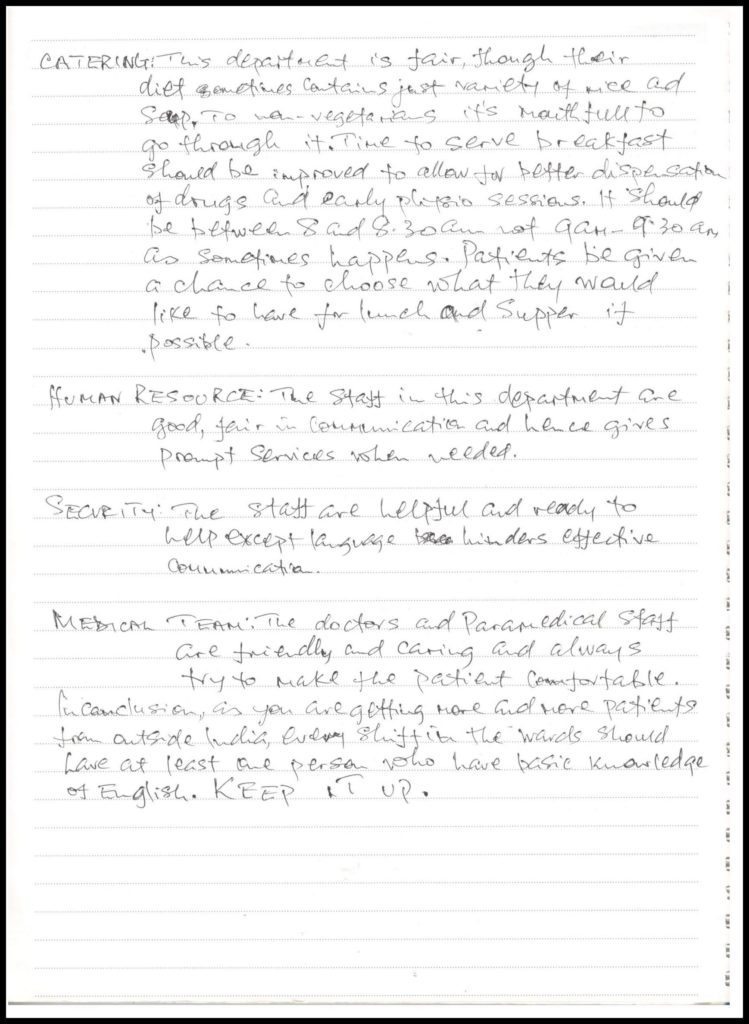 CATERING: This department is fair, though their
diet sometimes contains just variety of rice ad
Soup. To non-vegetarians it's mouthfull to
go through it. Time to serve breakfast
should be improved to allow for better dispensation
of drugs and early physio sessions. It should
be between 8 and 8.30am not 9am - 9:30 am
as sometimes happens. Patients be given
a chance to choose what they would
like to have for lunch and Supper if
possible.
HUMAN RESOURCE: The staff in this department are
good, fair in communication and hence gives
prompt services when needed.
SECURITY: The staff are helpful and ready to
help except language hinders effective
communication.
MEDICAL TEAM: The doctors and Paramedical Staff
are friendly and caring and always
try to make the patient comfortable.
In conclusion, as you are getting more and more patients
from outside India, every shift in the wards should
have at least one person who have basic knowledge
of English. KEEP IT UP.